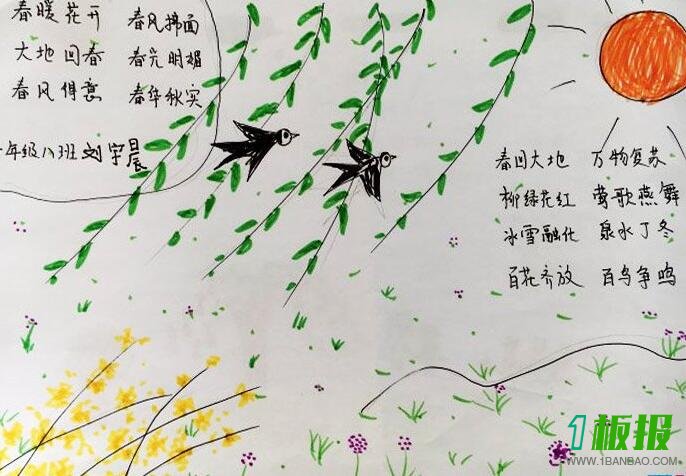 春暖花开 春风拂面
大地回春 春光明媚
春风得意 春华秋实
一年级八班 刘宇晨
春回大地 万物复苏
柳绿花红 莺歌燕舞
冰雪融化 泉水丁冬
百花齐放 百鸟争鸣
1板报
WWW.1BANBAO.COM